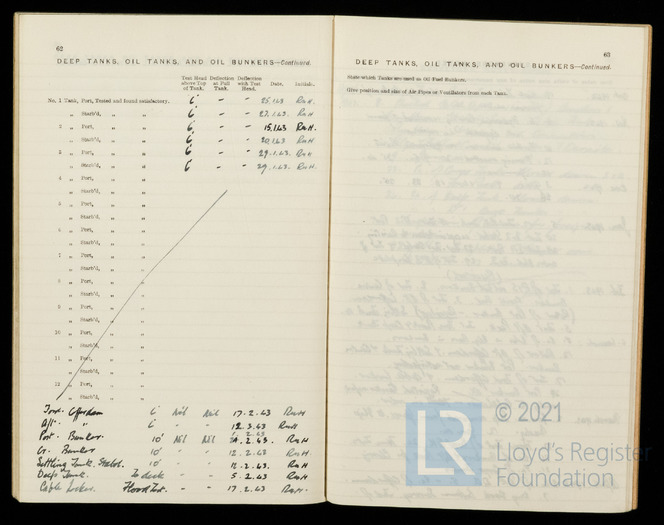 62
DEEP TANKS, OIL TANKS, AND OIL BUNKERS—Continued.
Test Head above Top of Tank. Deflection at Full Tank. Deflection with Test Head. Date. Initials.
No. 1 Tank, Port, Tested and found satisfactory. 6' - - 25.1.43 RmH.
„ Starb'd, „ „ 6' - - 27.1.43 RmH
2 „ Port, „ „ 6' - - 15.1.43 RmH.
„ Starb'd, „ „ 6' - - 20.1.43 RmH
3 „ Port, „ „ 6' - - 29.1.43. RmH
„ Starb'd, „ „ 6' - - 29.1.43. RmH
4 „ Port, „ „
„ Starb'd, „ „
5 „ Port, „ „
„ Starb'd, „ „
6 „ Port, „ „
„ Starb'd, „ „
7 „ Port, „ „
„ Starb'd, „ „
8 „ Port, „ „
„ Starb'd, „ „
9 „ Port, „ „
„ Starb'd, „ „
10 „ Port, „ „
„ Starb'd, „ „
11 „ Port, „ „
„ Starb'd, „ „
12 „ Port, „ „
„ Starb'd, „ „
Forw. Cofferdam 6' Nil Nil 17.2.43 RmH
Aft. „ 6' - - 12.3.43 RmH
Port. Bunker 10' Nil Nil 2.43. RmH
Cr. Bunker 10' - - 12.2.43 RmH
Settling Tank. Starbd. 10' - - 12.2.43. RmH
Deep Tank. To deck - - 5.2.43 RmH
Cable Locker. Flood Test. - 17.2.43 RmH.
63
DEEP TANKS, OIL TANKS, AND OIL BUNKERS—Continued.
State which Tanks are used as Oil Fuel Bunkers.
Give position and size of Air Pipes or Ventilators from each Tank.
LR
© 2021
Lloyd's Register
Foundation